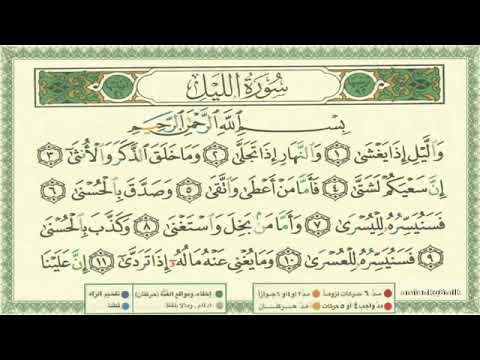 سُورَةُ اللَّيْلِ
بِسْمِ اللَّهِ الرَّحْمَٰنِ الرَّحِيمِ
وَاللَّيْلِ إِذَا يَغْشَىٰ ١ وَالنَّهَارِ إِذَا تَجَلَّىٰ ٢ وَمَا خَلَقَ الذَّكَرَ وَالْأُنثَىٰ ٣
إِنَّ سَعْيَكُمْ لَشَتَّىٰ ٤ فَأَمَّا مَنْ أَعْطَىٰ وَاتَّقَىٰ ٥ وَصَدَّقَ بِالْحُسْنَىٰ ٦
فَسَنُيَسِّرُهُ لِلْيُسْرَىٰ ٧ وَأَمَّا مَنْ بَخِلَ وَاسْتَغْنَىٰ ٨ وَكَذَّبَ بِالْحُسْنَىٰ
٩ فَسَنُيَسِّرُهُ لِلْعُسْرَىٰ ١٠ وَمَا يُغْنِي عَنْهُ مَالُهُ إِذَا تَرَدَّىٰ ١١ إِنَّ عَلَيْنَا
مد ٦ حركات لزوماً مد ٢ أو ٤ أو ٦ جوازاً إخفاء، ومواقع الغنة (حركتان) تفخيم الراء
مد واجب ٤ أو ٥ حركات مد حركتان إدغام، وما لا يلفظ قلقلة